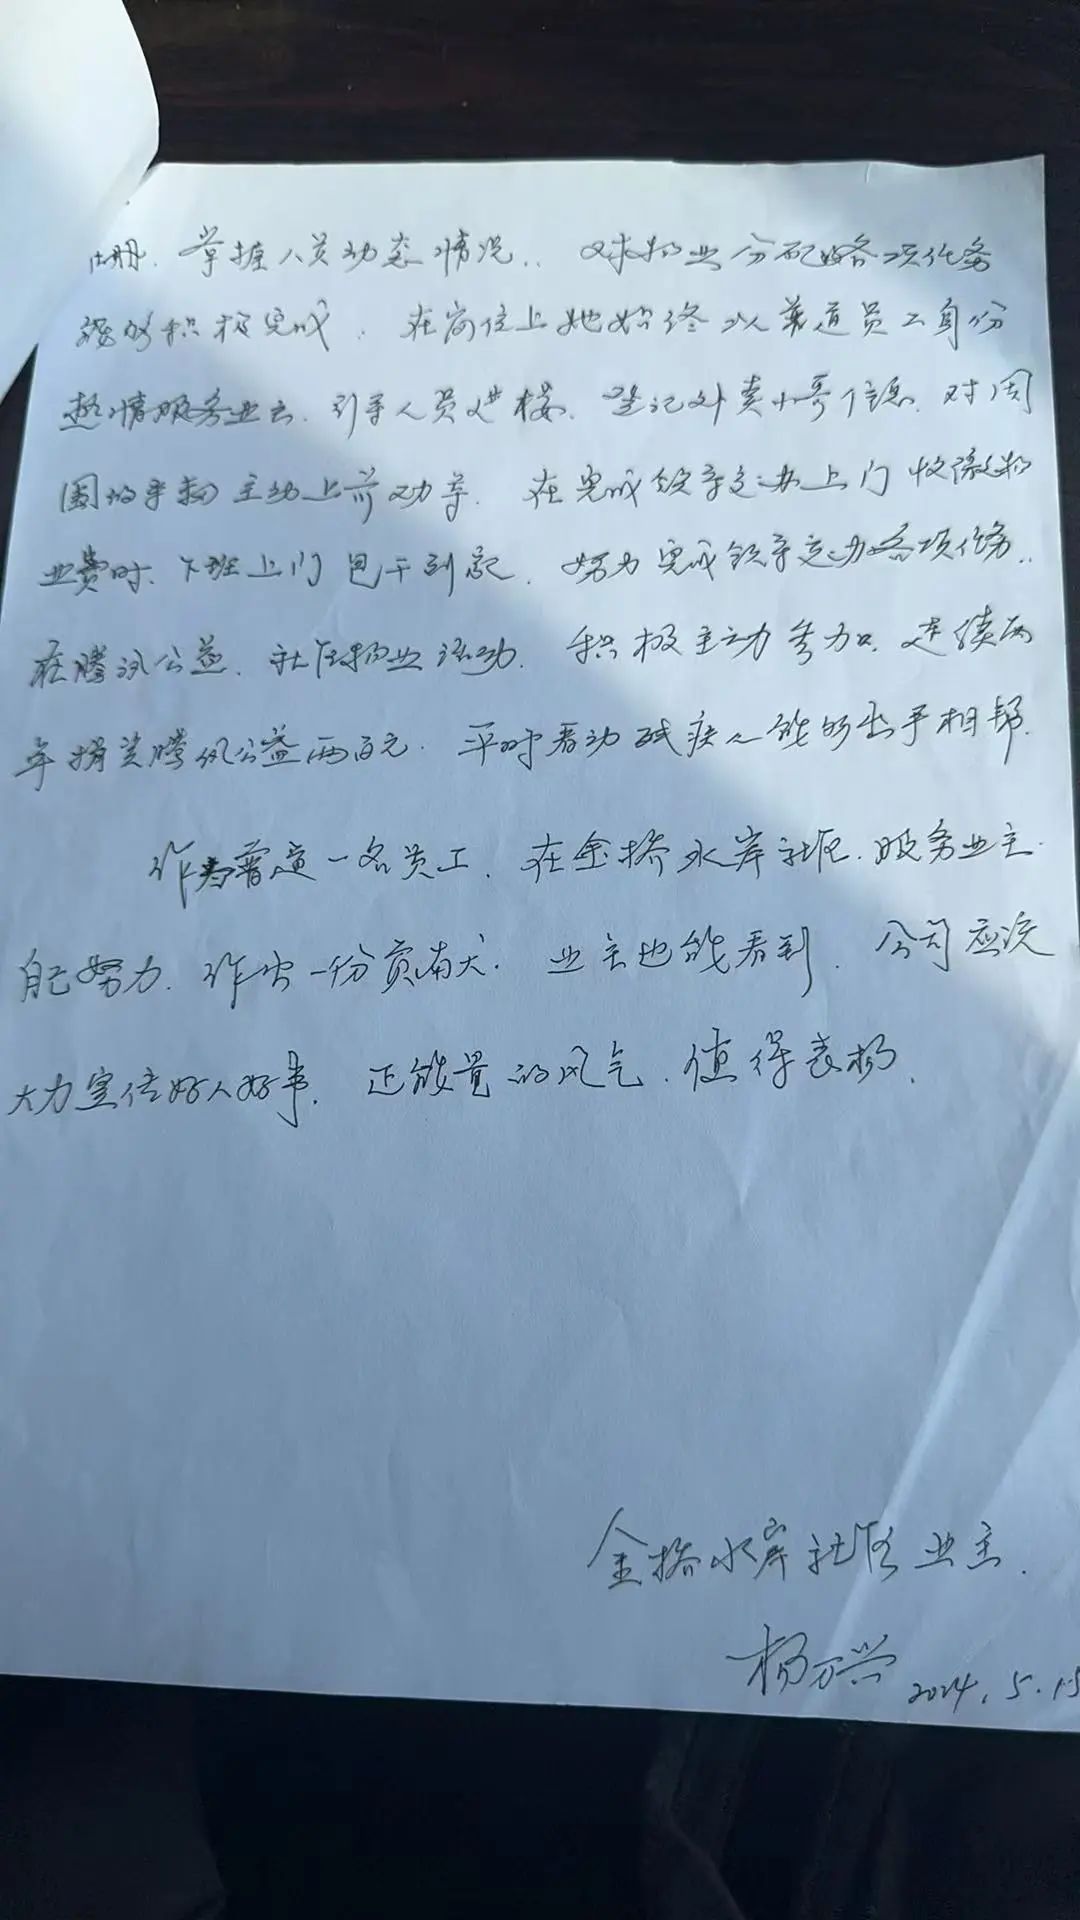 册、掌握人员动态情况。对物业分配的各项任务
能够积极完成。在岗位上她始终以普通员工身份
热情服务业主、引导人员进楼、登记外卖小哥信息、对周
围的事物主动上前劝导。在完成领导交办上门收缴物
业费时、下班上门包干到家、努力完成领导交办各项任务。
在腾讯公益、社区物业活动、积极主动参加、连续两
年捐赏腾讯公益两百元、平时看动残疾人能够出手相帮。
作为普通一名员工、在金桥水岸社区、服务业主、
自己努力、作出一份贡献、业主也能看到、公司应该
大力宣传好人好事、正能量的风气、值得表扬。
金桥水岸社区业主
杨万兴 2024.5.15